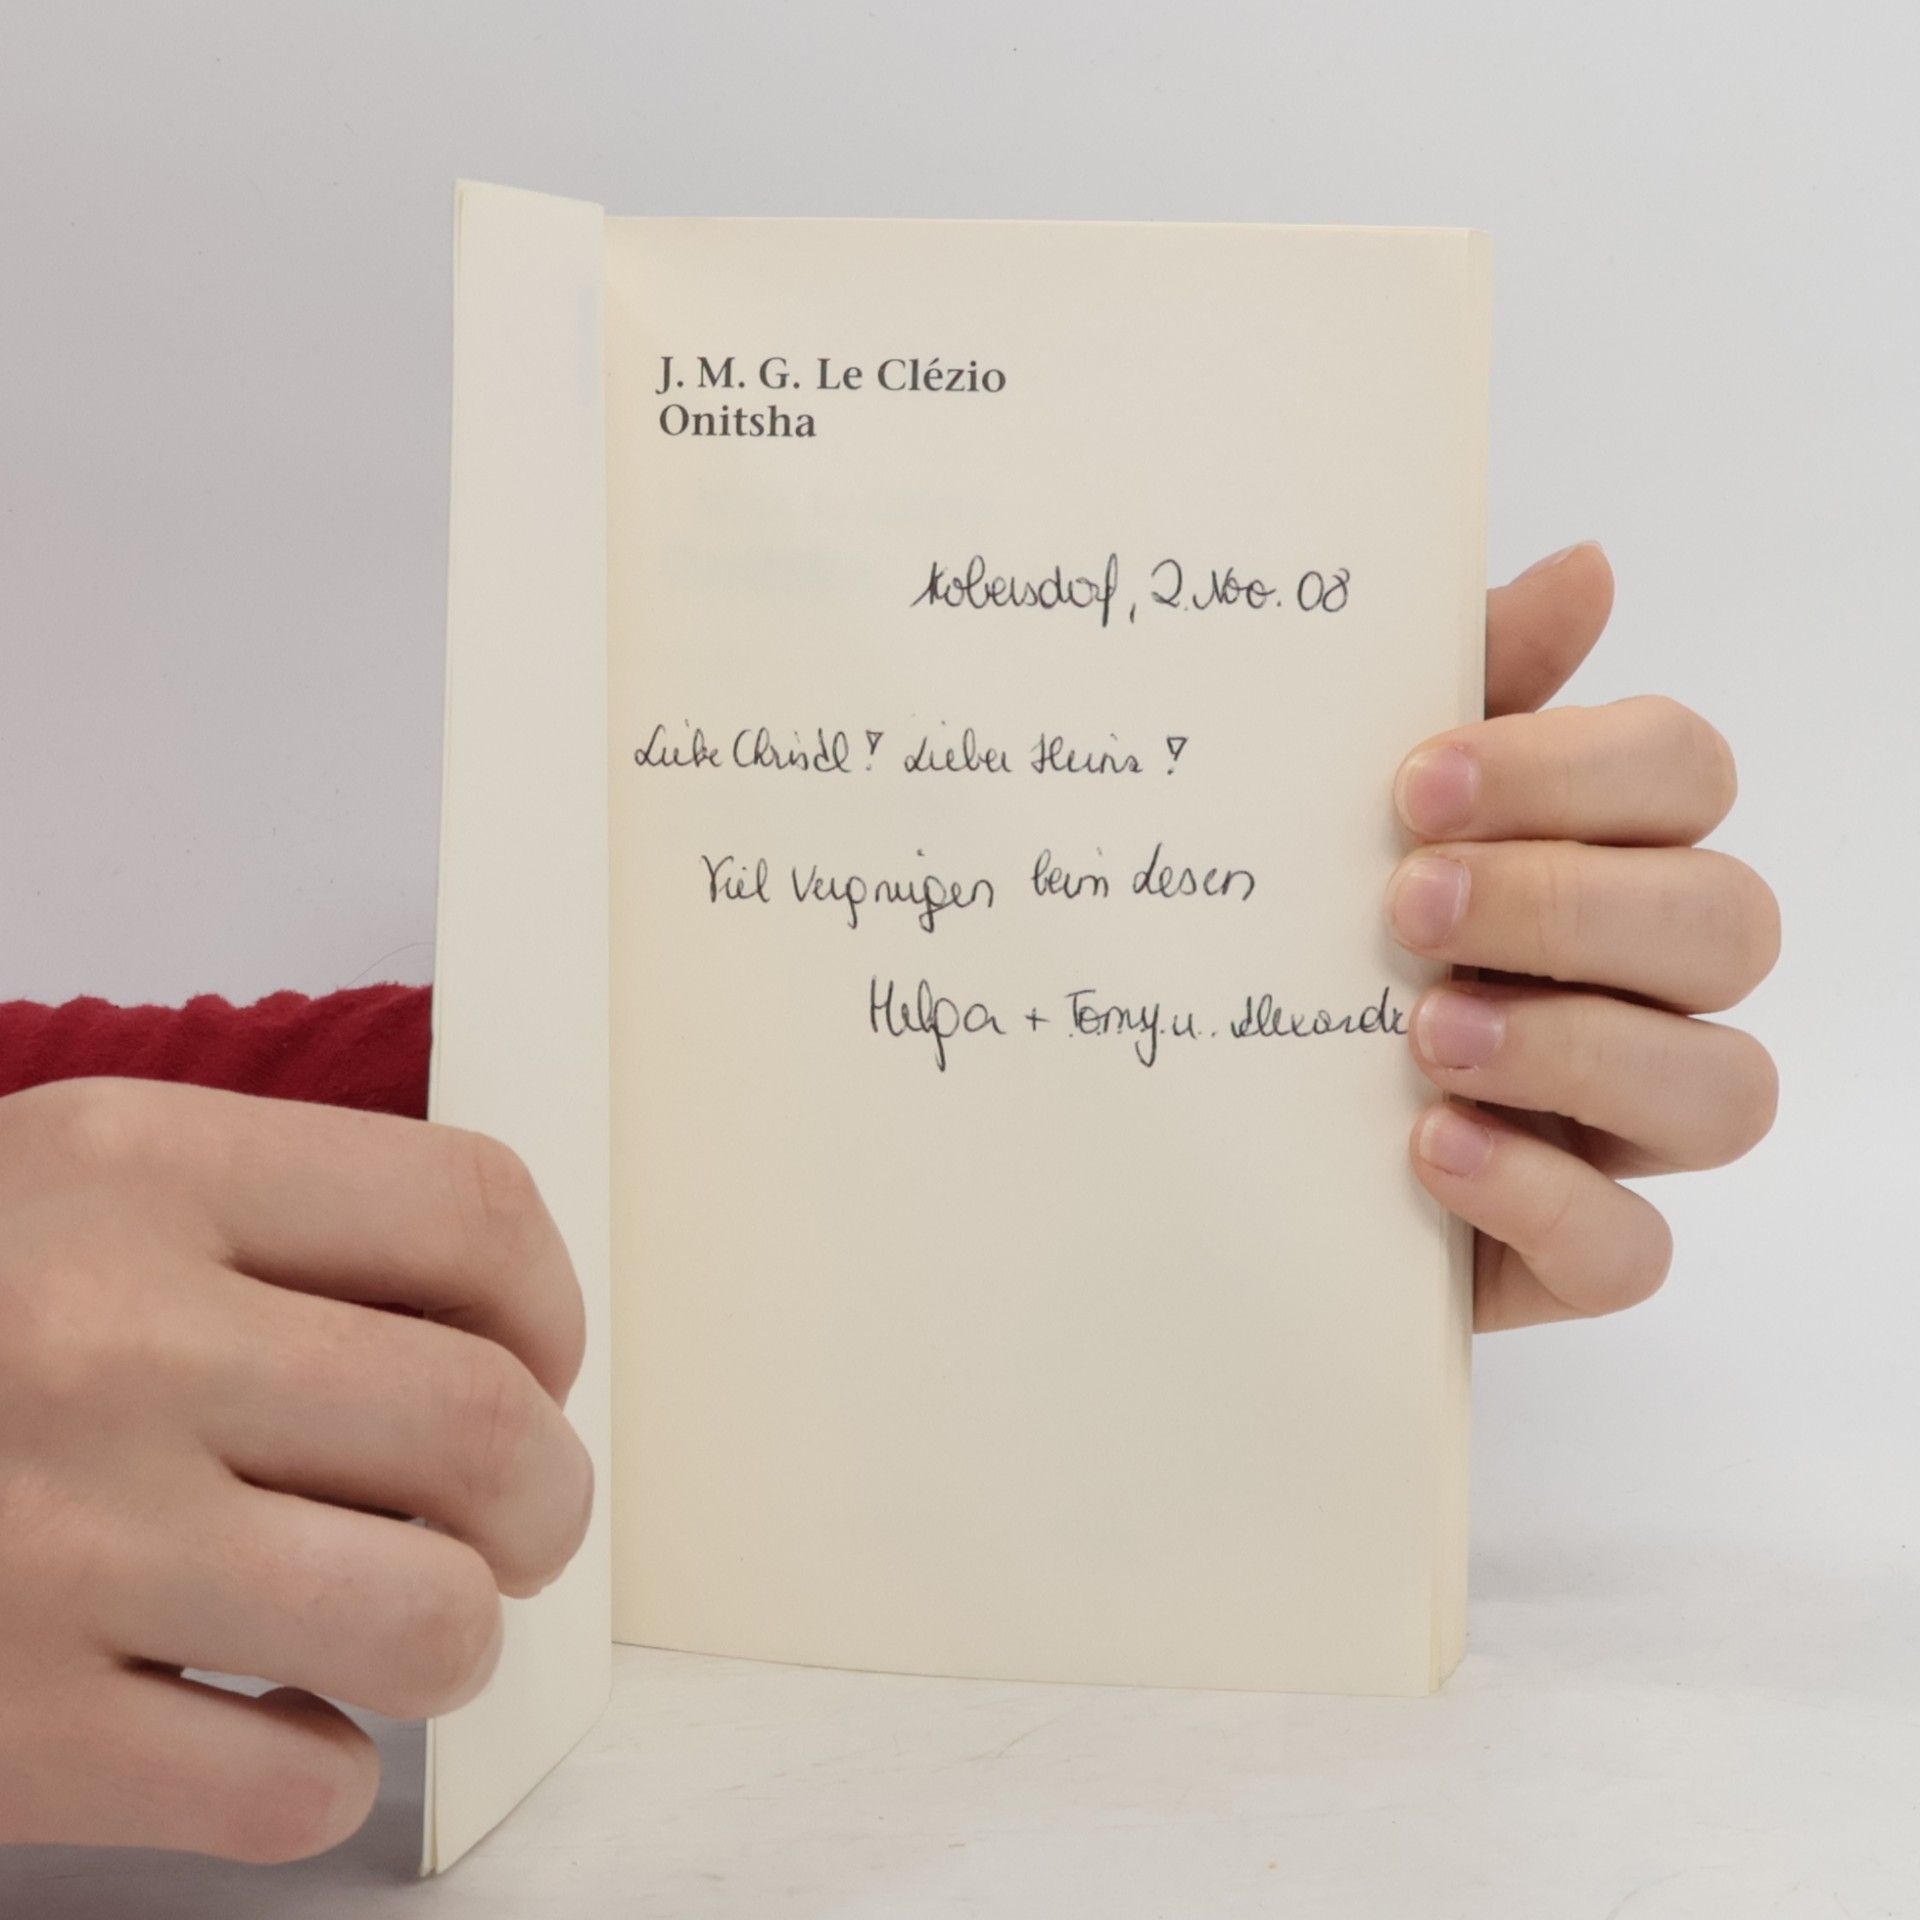 J. M. G. Le Clézio
Onitsha
Kobersdorf, 2. Nov. 08
Liebe Christl! Lieber Heinz!
Viel Vergnügen beim Lesen
Helga + Tomy u. Alexandr